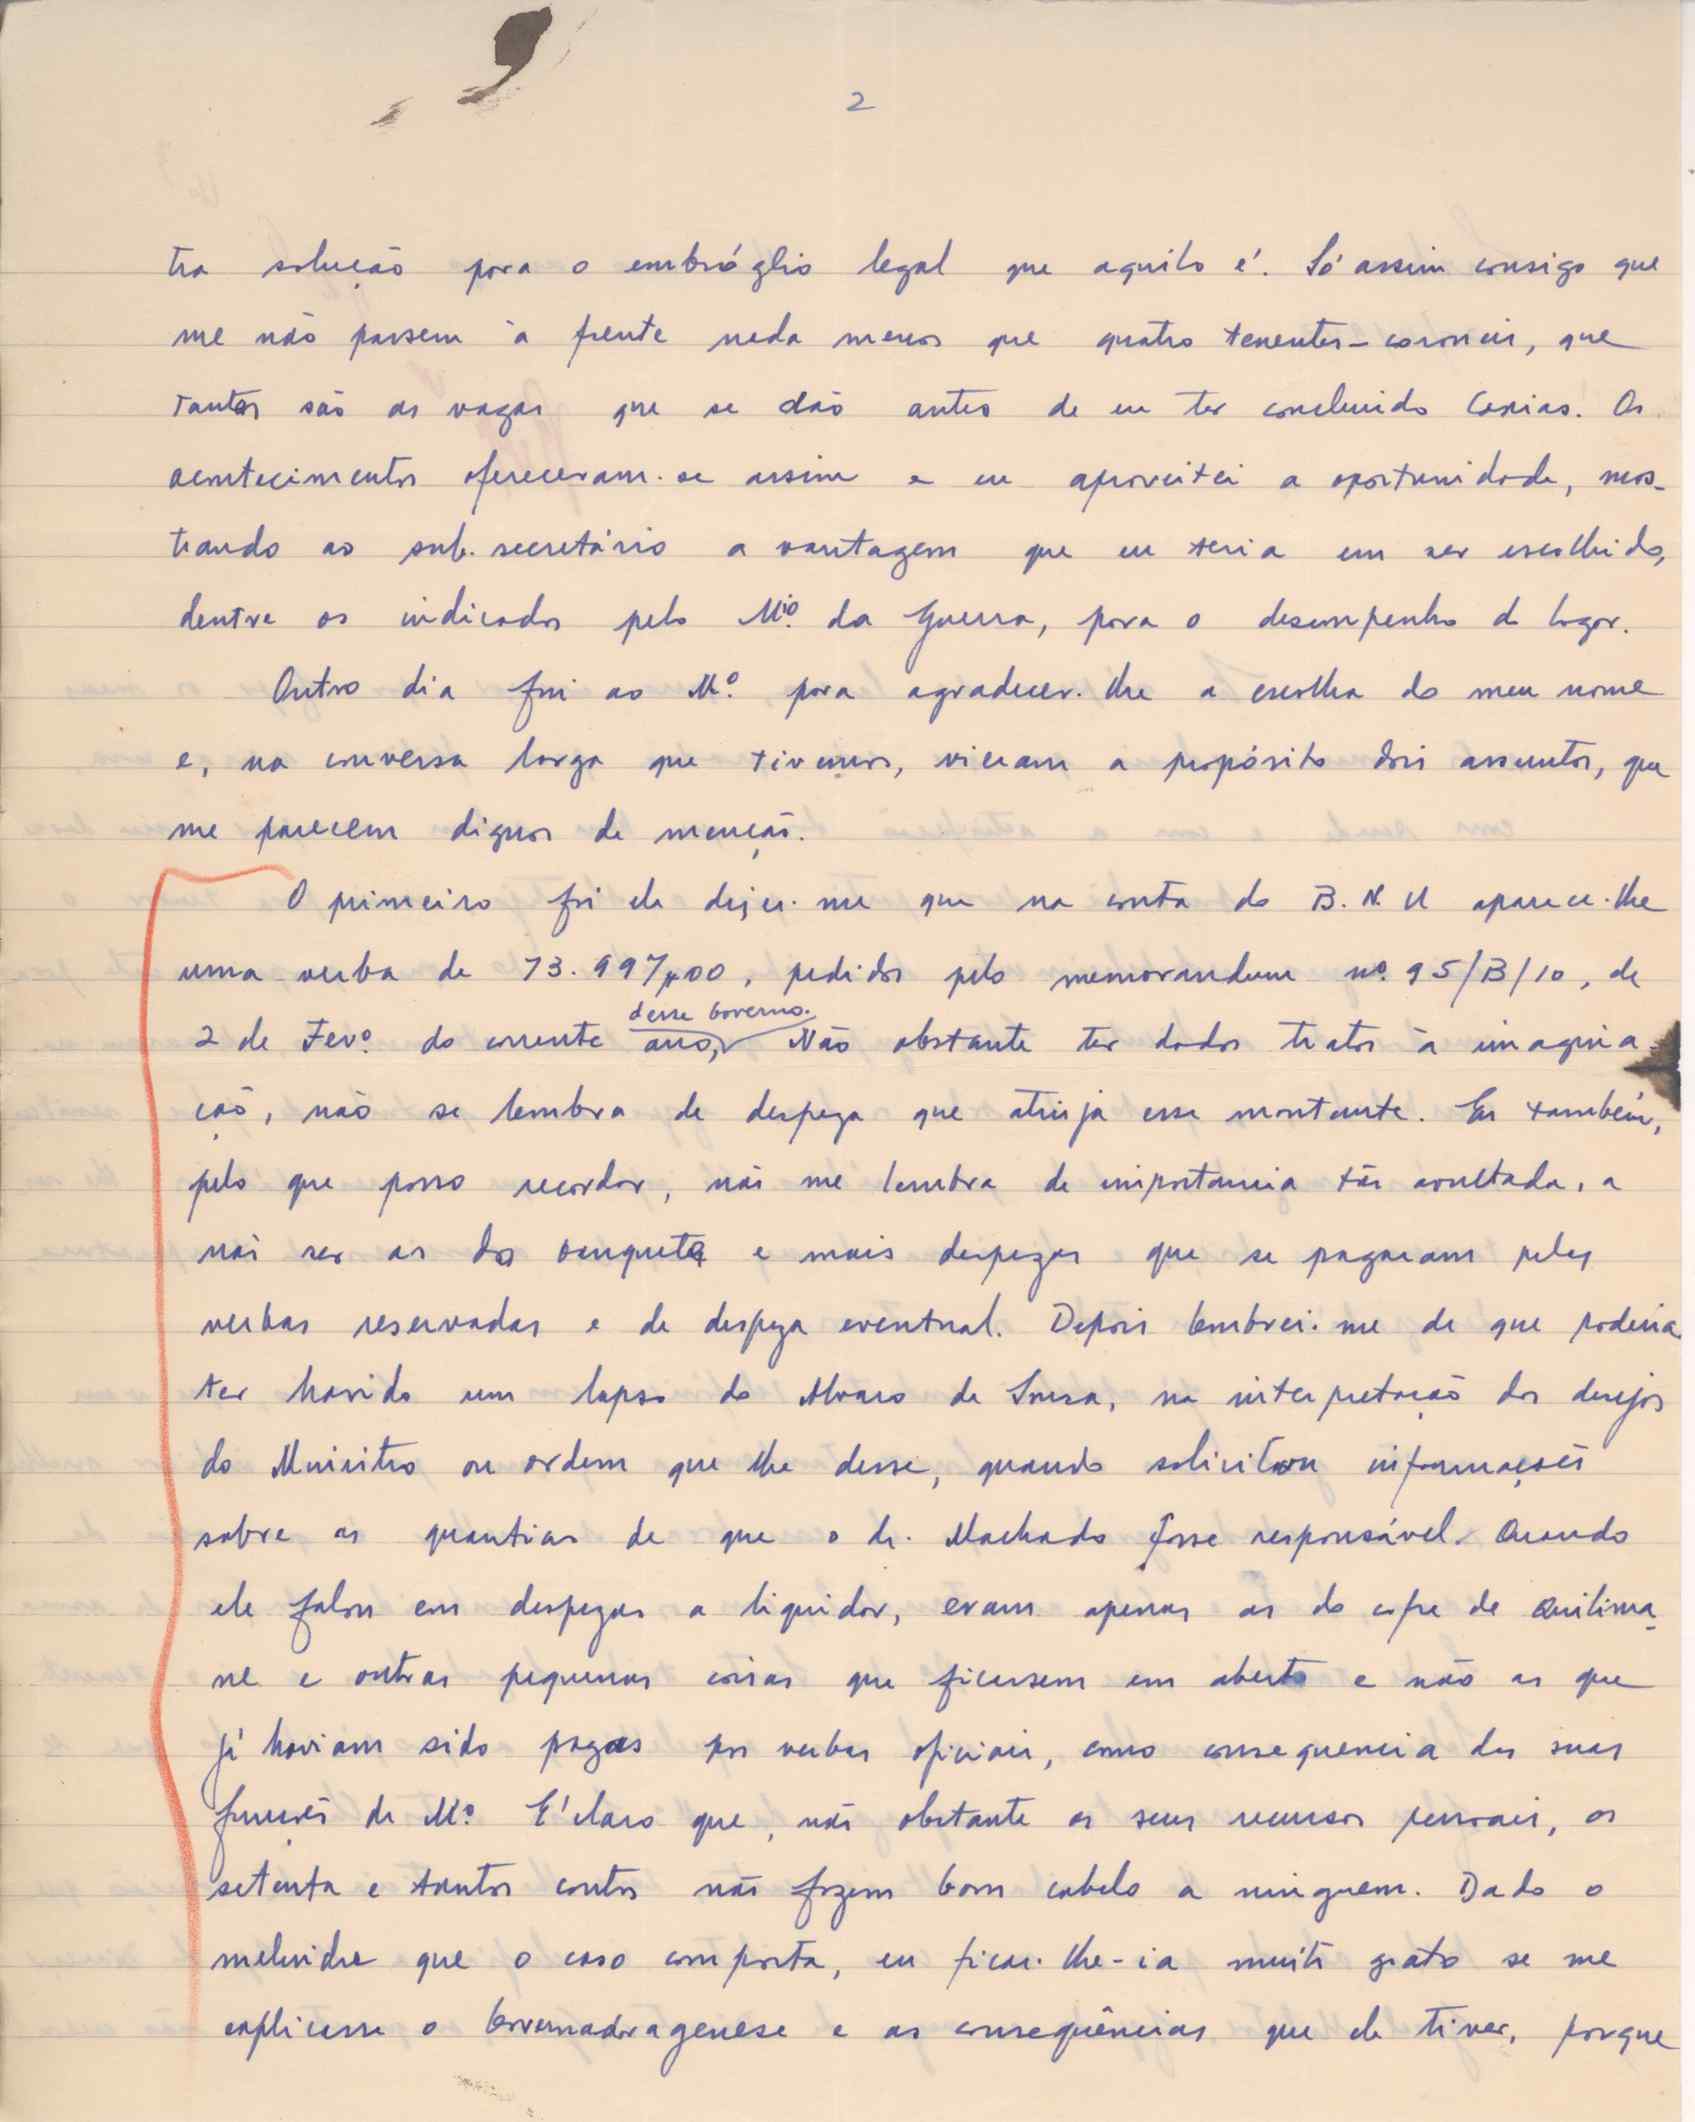 2
tra solução para o embróglio legal que aquilo é. Só assim consigo que
me não passem à frente nada menos que quatro tenentes-coroneis, que
tantas são as vagas que se dão antes de eu ter concluido Caxias. Os
acontecimentos ofereceram-se assim e eu aproveitei a oportunidade, mos-
trando ao sub-secretário a vantagem que eu teria em ser escolhido,
dentre os indicados pelo Mio. da Guerra, para o desempenho do lugar.
Outro dia fui ao Mo. para agradecer-lhe a escolha do meu nome
e, na conversa larga que tivemos, vieram a propósito dois assuntos, que
me parecem dignos de menção.
O primeiro foi ele dizer-me que na conta do B. N. U aparece-lhe
uma verba de 73.997$00, pedidos pelo memorandum no. 95/B/10, de
desse Governo.
2 de Fevo. do corrente ano, Não obstante ter dados tratos à imagina-
ção, não se lembra de despeza que atinja esse montante. Eu também,
pelo que posso recordar, não me lembra de importancia tão avultada, a
não ser as dos banquetes e mais despezas que se pagaram pelas
verbas reservadas e de despeza eventual. Depois lembrei-me de que poderia
ter havido um lapso do Alvaro de Sousa, na interpretação dos desejos
do Ministro ou ordem que lhe desse, quando solicitou informações
sobre as quantias de que o dr. Machado fosse responsável. Quando
ele falou em despezas a liquidar, eram apenas as do cofre de Quilima-
ne e outras pequenas coisas que ficassem em aberto e não as que
já haviam sido pagas por verbas oficiais, como consequencia das suas
funções de Mo. É claro que, não obstante os seus recursos pessoais, os
setenta e tantos contos não fazem bom cabelo a ninguem. Dado o
melindre que o caso comporta, eu ficar-lhe-ia muito grato se me
explicasse o e as consequências que ele tiver, porque